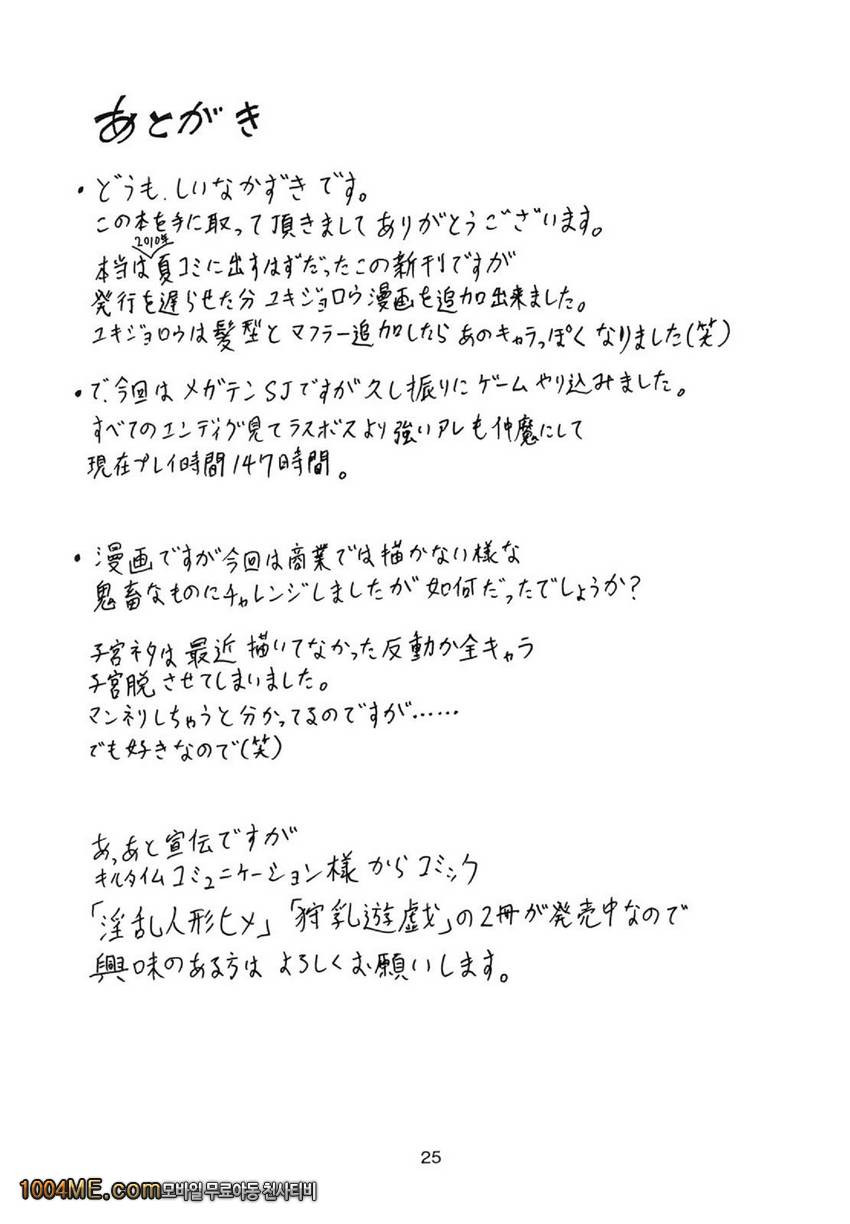 あとがき
・どうも、しいなかずきです。
この本を手に取って頂きましてありがとうございます。
2010年
本当は夏コミに出すはずだったこの新刊ですが
発行を遅らせた分 ユキジョロウ漫画を追加出来ました。
ユキジョロウは髪型とマフラー追加したら あのキャラっぽくなりました(笑)
・で、今回は メガテンSJですが久し振りに ゲームやり込みました。
すべてのエンディグ見てラスボスより強いアレも仲魔にして
現在プレイ時間147時間。
・漫画ですが今回は商業では描かない様な
鬼畜なものにチャレンジしましたが如何だったでしょうか?
子宮ネタは最近描いてなかった反動か全キャラ
子宮脱させてしまいました。
マンネリしちゃうと分かってるのですが……
でも好きなので(笑)
あっ、あと宣伝ですが
キルタイムコミュニケーション様からコミック
「淫乱人形ヒメ」「狩乳遊戯」の2冊が発売中なので
興味のある方は よろしくお願いします。
25
1004ME.com모바일 무료야동 천사티비